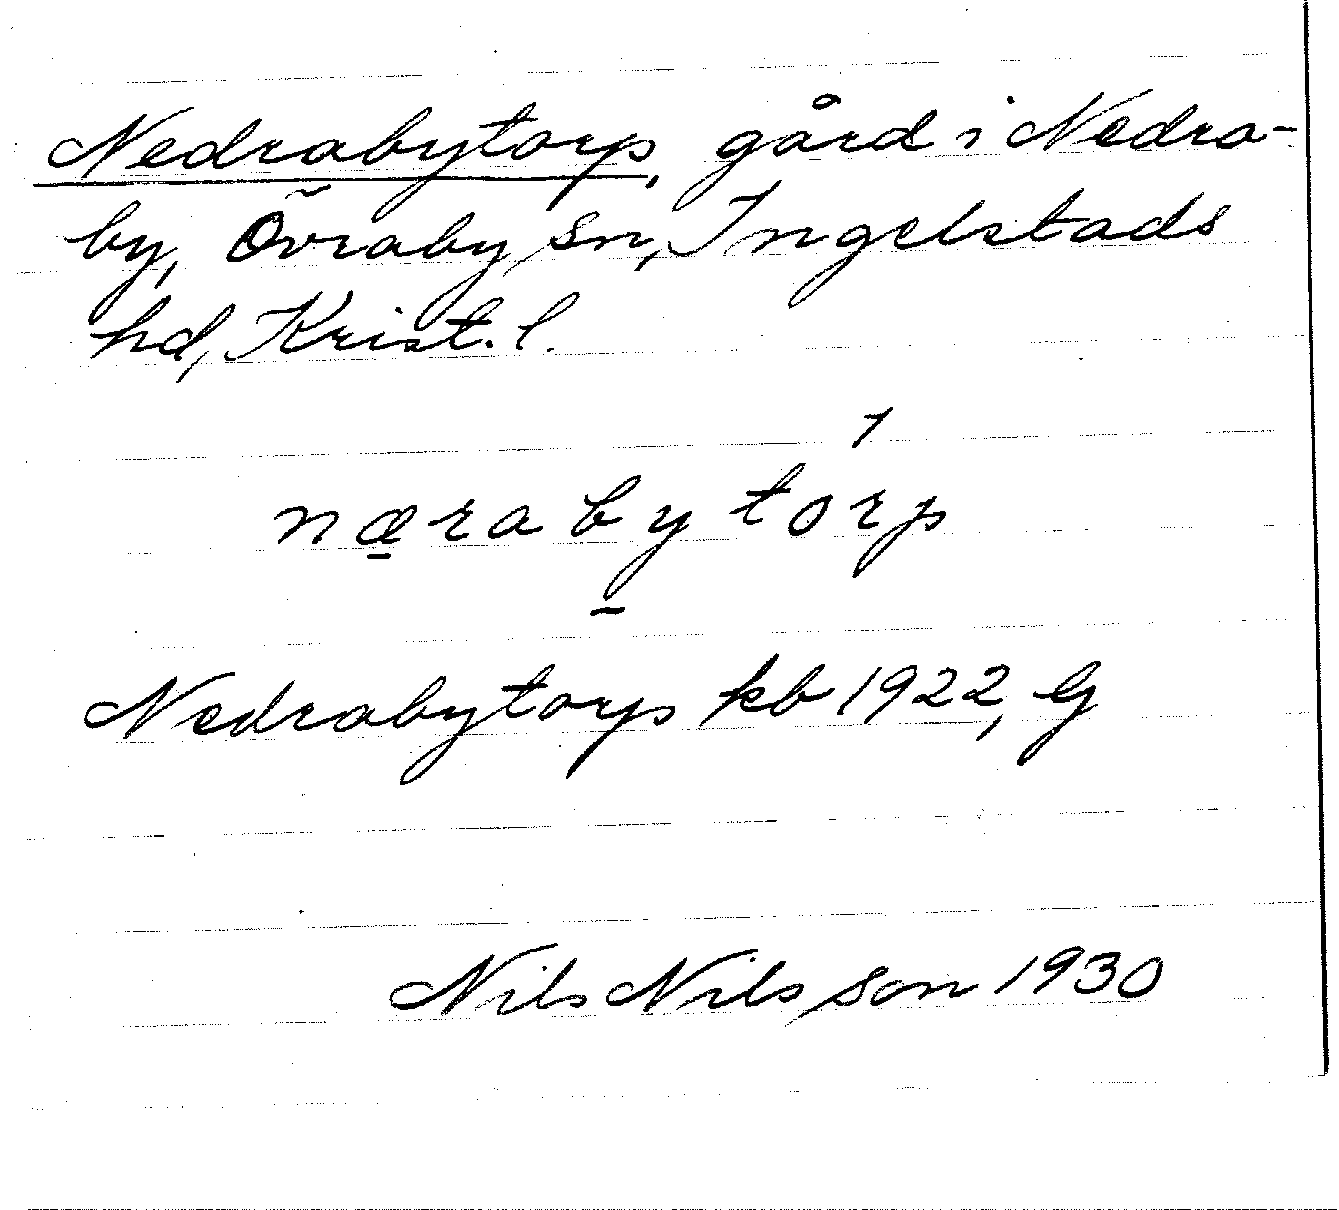 Nedrabytorp, gård i Nedra-
by, Övraby sn, Ingelstads
hd, Krist. l.
næ̱raby̱tórp
Nedrabytorp kb 1922, G
Nils Nilsson 1930